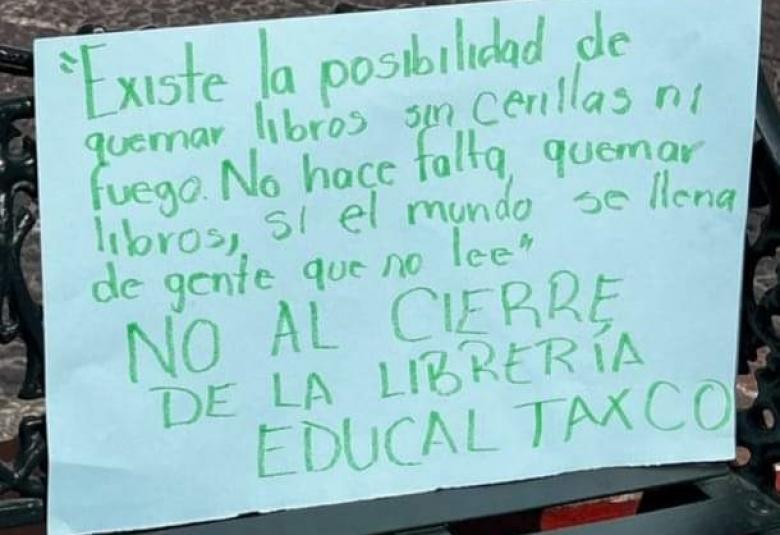 "Existe la posibilidad de
quemar libros sin cerillas ni
fuego. No hace falta, quemar
libros, si el mundo se llena
de gente que no lee"
NO AL CIERRE
DE LA LIBRERÍA
EDUCAL TAXCO